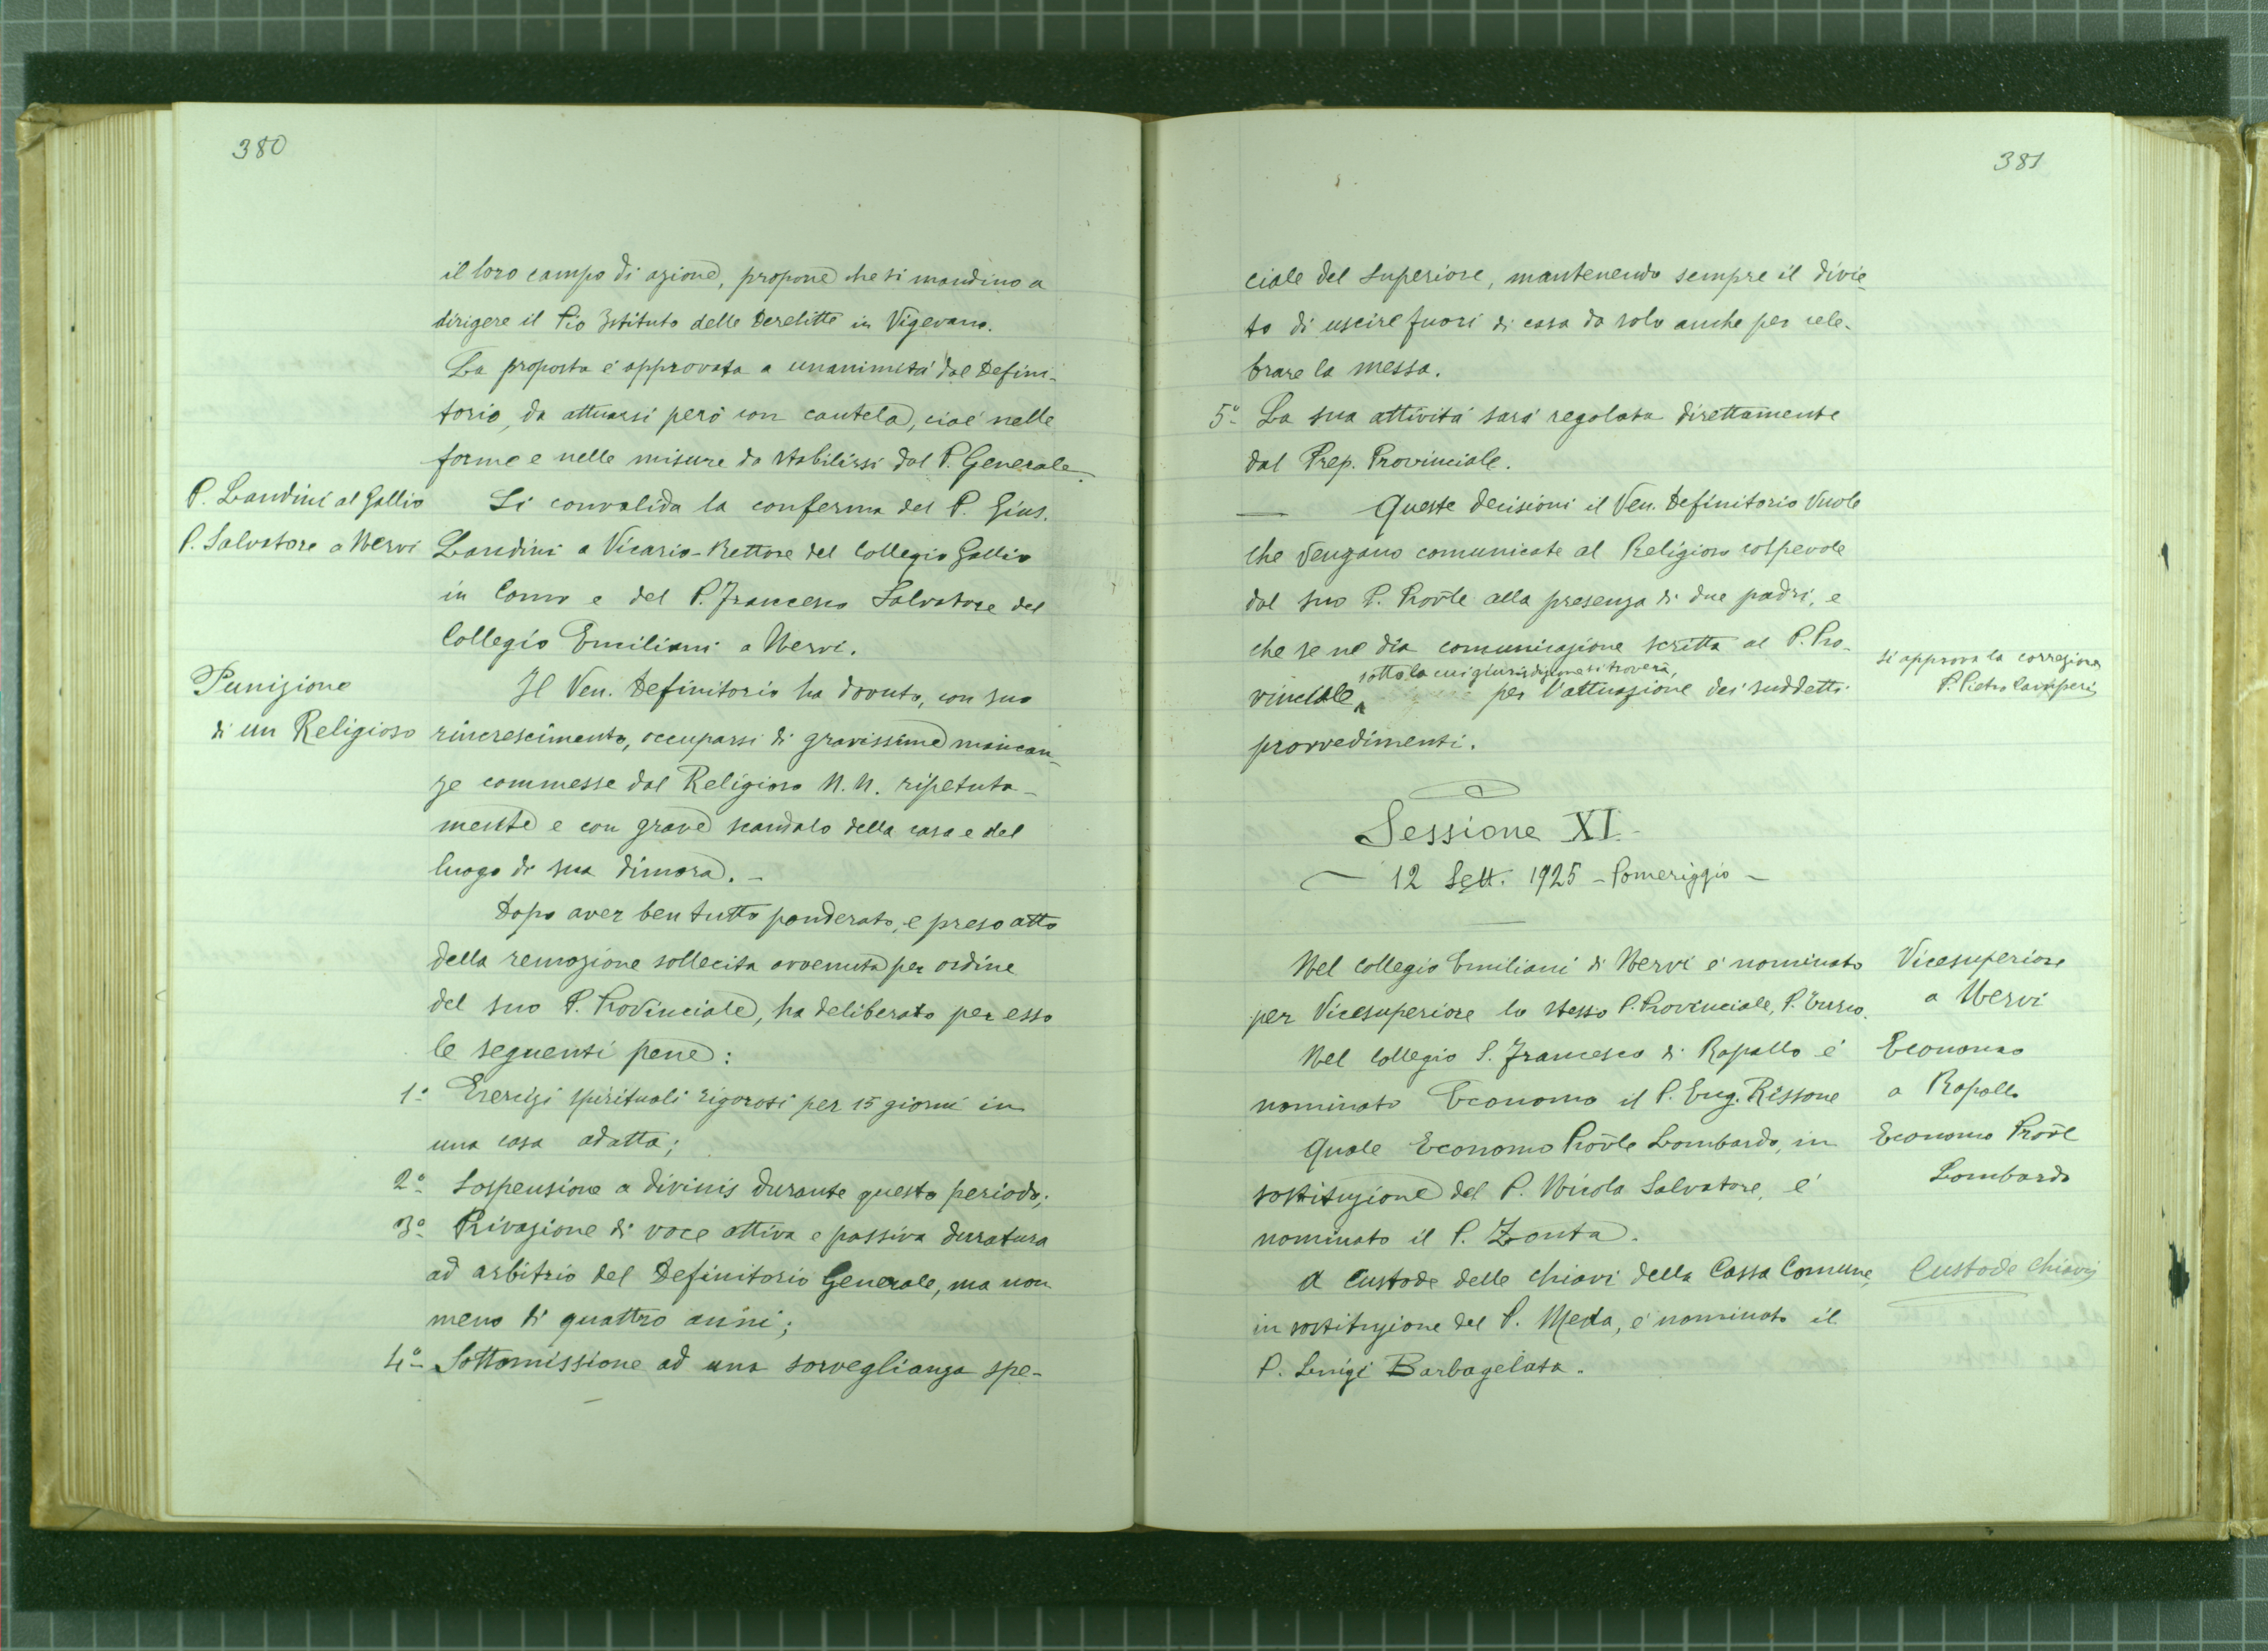 380
il loro campo di azione, propone che si mandino a
dirigere il Pio Istituto delle Derelitte in Vigevano.
La proposta é approvata a unanimitá dal Defini-
torio, da attuarsi peró con cautela, cioé nelle
forme e nelle misure da stabilirsi dal P. Generale.
P. Landini al Gallio
P. Salvatore a Nervi
Si convalida la conferma del P. Gius.
Landini a Vicario-Rettore del Collegio Gallio
in Como e del P. Francesco Salvatore del
Collegio Emiliani a Nervi.
Punizione
di un Religioso
Il Ven. Definitorio ha dovuto, con suo
rincrescimento, occuparsi di gravissime mancan-
ze commesse dal Religioso N. N. ripetuta-
mente e con grave scandalo della casa e del
luogo di sua dimora. -
Dopo aver ben tutto ponderato, e preso atto
della remozione sollecita avvenuta per ordine
del suo P. Provinciale, ha deliberato per esso
le seguenti pene:
1º Esercizi spirituali rigorosi per 15 giorni in
una casa adatta;
2º Sospensione a divinis durante questo periodo;
3º Privazione di voce attiva e passiva duratura
ad arbitrio del Definitorio Generale, ma non
meno di quattro anni;
4º Sottomissione ad una sorveglianza spe-
381
ciale del Superiore, mantenendo sempre il divie-
to di uscire fuori di casa da solo anche per cele-
brare la messa.
5º La sua attivitá sará regolata direttamente
dal Prep. Provinciale.
— Queste decisioni il Ven. Definitorio vuole
che vengano comunicate al Religioso colpevole
dal suo P. Provle alla presenza di due padri, e
che se ne dia comunicazione scritta al P. Pro-
sotto la cui giurisdizione si troverà,
vinciale per l'attuazione dei suddetti
provvedimenti.
Si approva la correzione
P. Pietro Camperi
Sessione XI.
12 Sett. 1925 - Pomeriggio -
Nel Collegio Emiliani di Nervi é nominato
per Vicesuperiore lo stesso P. Provinciale, P.
Vicesuperiore
a Nervi
Nel Collegio S. Francesco di Rapallo é
nominato Economo il P. Eug. Rissone
Economo
a Rapallo
Quale Economo Provle Lombardo, in
sostituzione del P. Nicola Salvatore, é
nominato il P. Zonta.
Economo Provle
Lombardo
A Custode delle chiavi della Cassa Comune,
in sostituzione del P. Meda, é nominato il
P. Luigi Barbagelata.
Custode Chiavi